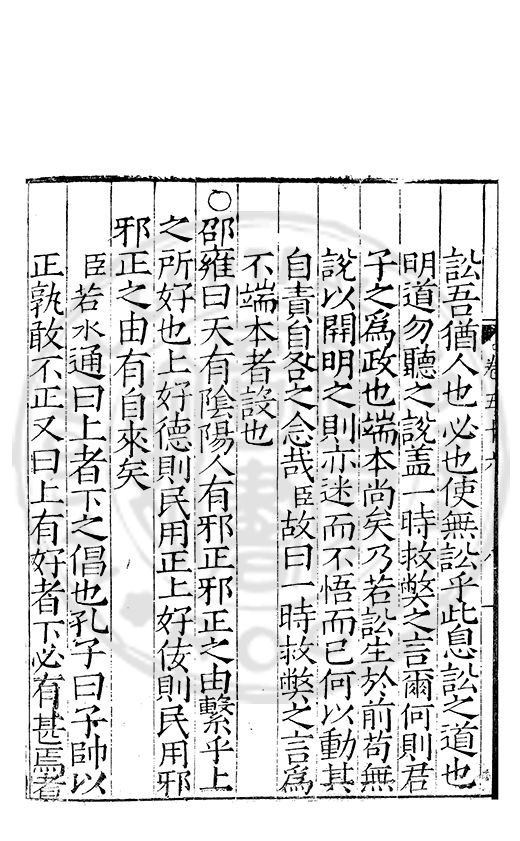 訟吾猶人也必也使無訟乎此息訟之道也
明道勿聽之說盖一時救弊之言爾何則君
子之爲政也端本尚矣乃若訟生於前苟無
說以開明之則亦迷而不悟而已何以動其
自責自咎之念哉臣故曰一時救弊之言爲
不端本者設也
○邵雍曰天有陰陽人有邪正邪正之由繫乎上
之所好也上好德則民用正上好佞則民用邪
邪正之由有自來矣
臣若水通曰上者下之倡也孔子曰子帥以
正孰敢不正又曰上有好者下必有甚焉者
卷五十六 八